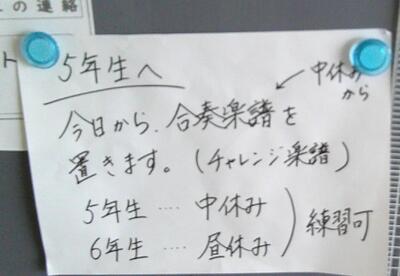 の連絡
ト
5年生へ
中休み
から
今日から、合奏楽譜を
置きます。(チャレンジ楽譜)
5年生 ‥‥ 中休み
6年生 ‥‥ 昼休み
練習可